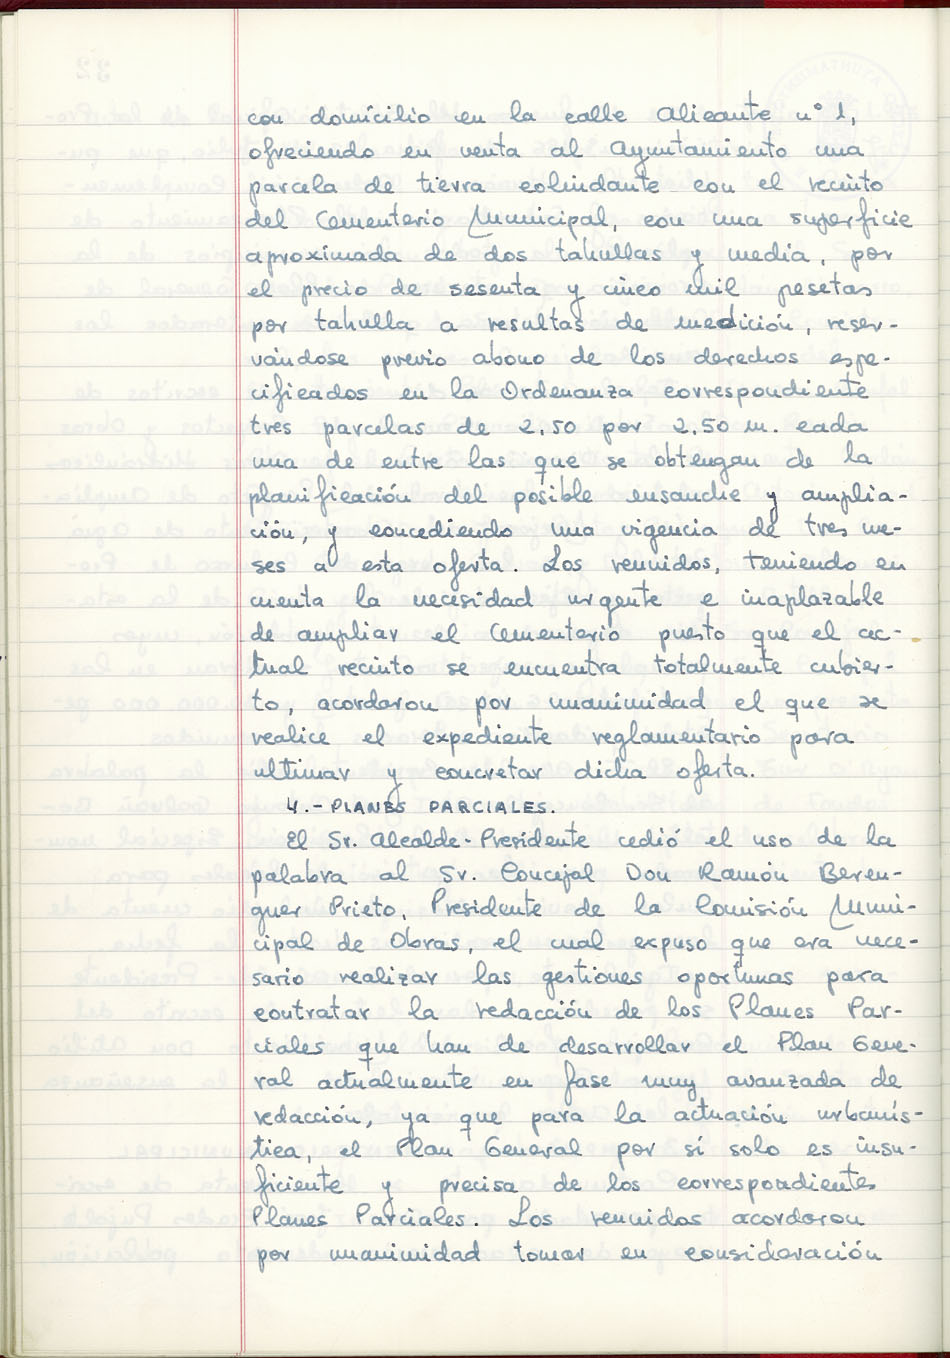 con domicilio en la calle Alicante n° 1,
ofreciendo en venta al Ayuntamiento una
parcela de tierra colindante con el recinto
del Cementerio Municipal, con una superficie
aproximada de dos tahullas y media, por
el precio de sesenta y cinco mil pesetas
por tahulla a resultas de medición, reser-
vándose previo abono de los derechos espe-
cificados en la Ordenanza correspondiente
tres parcelas de 2,50 por 2,50 m. cada
una de entre las que se obtengan de la
planificación del posible ensanche y amplia-
ción, y concediendo una vigencia de tres me-
ses a esta oferta. Los reunidos, teniendo en
cuenta la necesidad urgente e inaplazable
de ampliar el Cementerio puesto que el ac-
tual recinto se encuentra totalmente cubier-
to, acordaron por unanimidad el que se
realice el expediente reglamentario para
ultimar y concretar dicha oferta.
4.- PLANES PARCIALES.
El Sr. Alcalde-Presidente cedió el uso de la
palabra al Sr. Concejal Don Ramón Beren-
guer Prieto, Presidente de la Comisión Muni-
cipal de Obras, el cual expuso que era nece-
sario realizar las gestiones oportunas para
contratar la redacción de los Planes Par-
ciales que han de desarrollar el Plan Gene-
ral actualmente en fase muy avanzada de
redacción, ya que para la actuación urbanís-
tica, el Plan General por sí solo es insu-
ficiente y precisa de los correspondientes
Planes Parciales. Los reunidos acordaron
por unanimidad tomar en consideración